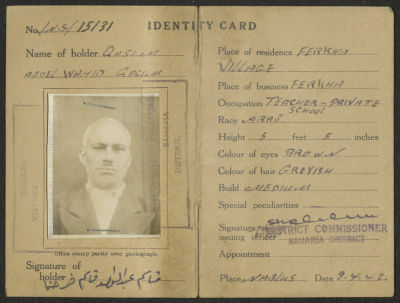 No. LN.S/15/31
IDENTITY CARD
Name of holder QASIM
ABDEL WAHID QASIM
Office stamp partly over photograph.
Signature of
holder قاسم عبد الواحد قاسم
Place of residence FERKHA
VILLAGE
Place of business FERKHA
Occupation TEACHER - PRIVATE
SCHOOL
Race ARAB.
Height 5 feet 5 inches
Colour of eyes BROWN
Colour of hair GREYISH
Build MEDIUM
Special peculiarities —
Signature of
issuing officer
DISTRICT COMMISSIONER
SAMARIA DISTRICT
Appointment
Place NABLUS Date 9.4.42.